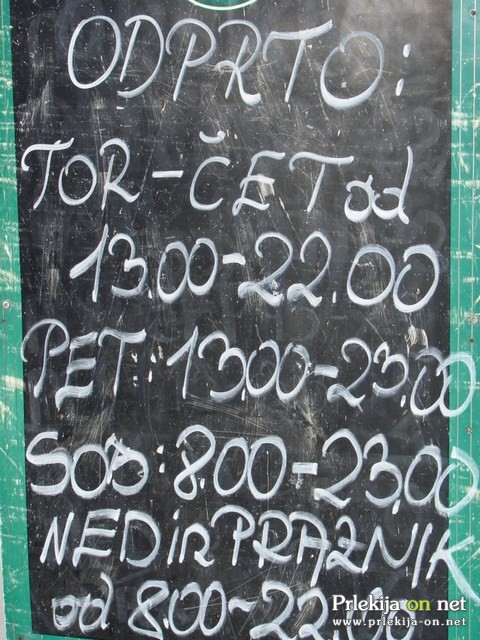 ODPRTO:
TOR-ČET od
13.00-22.00
PET: 13.00-23.00
SOB: 8.00-23.00
NED in PRAZNIK
od 8.00-22.00
Prlekija on net
www.prlekija-on.net